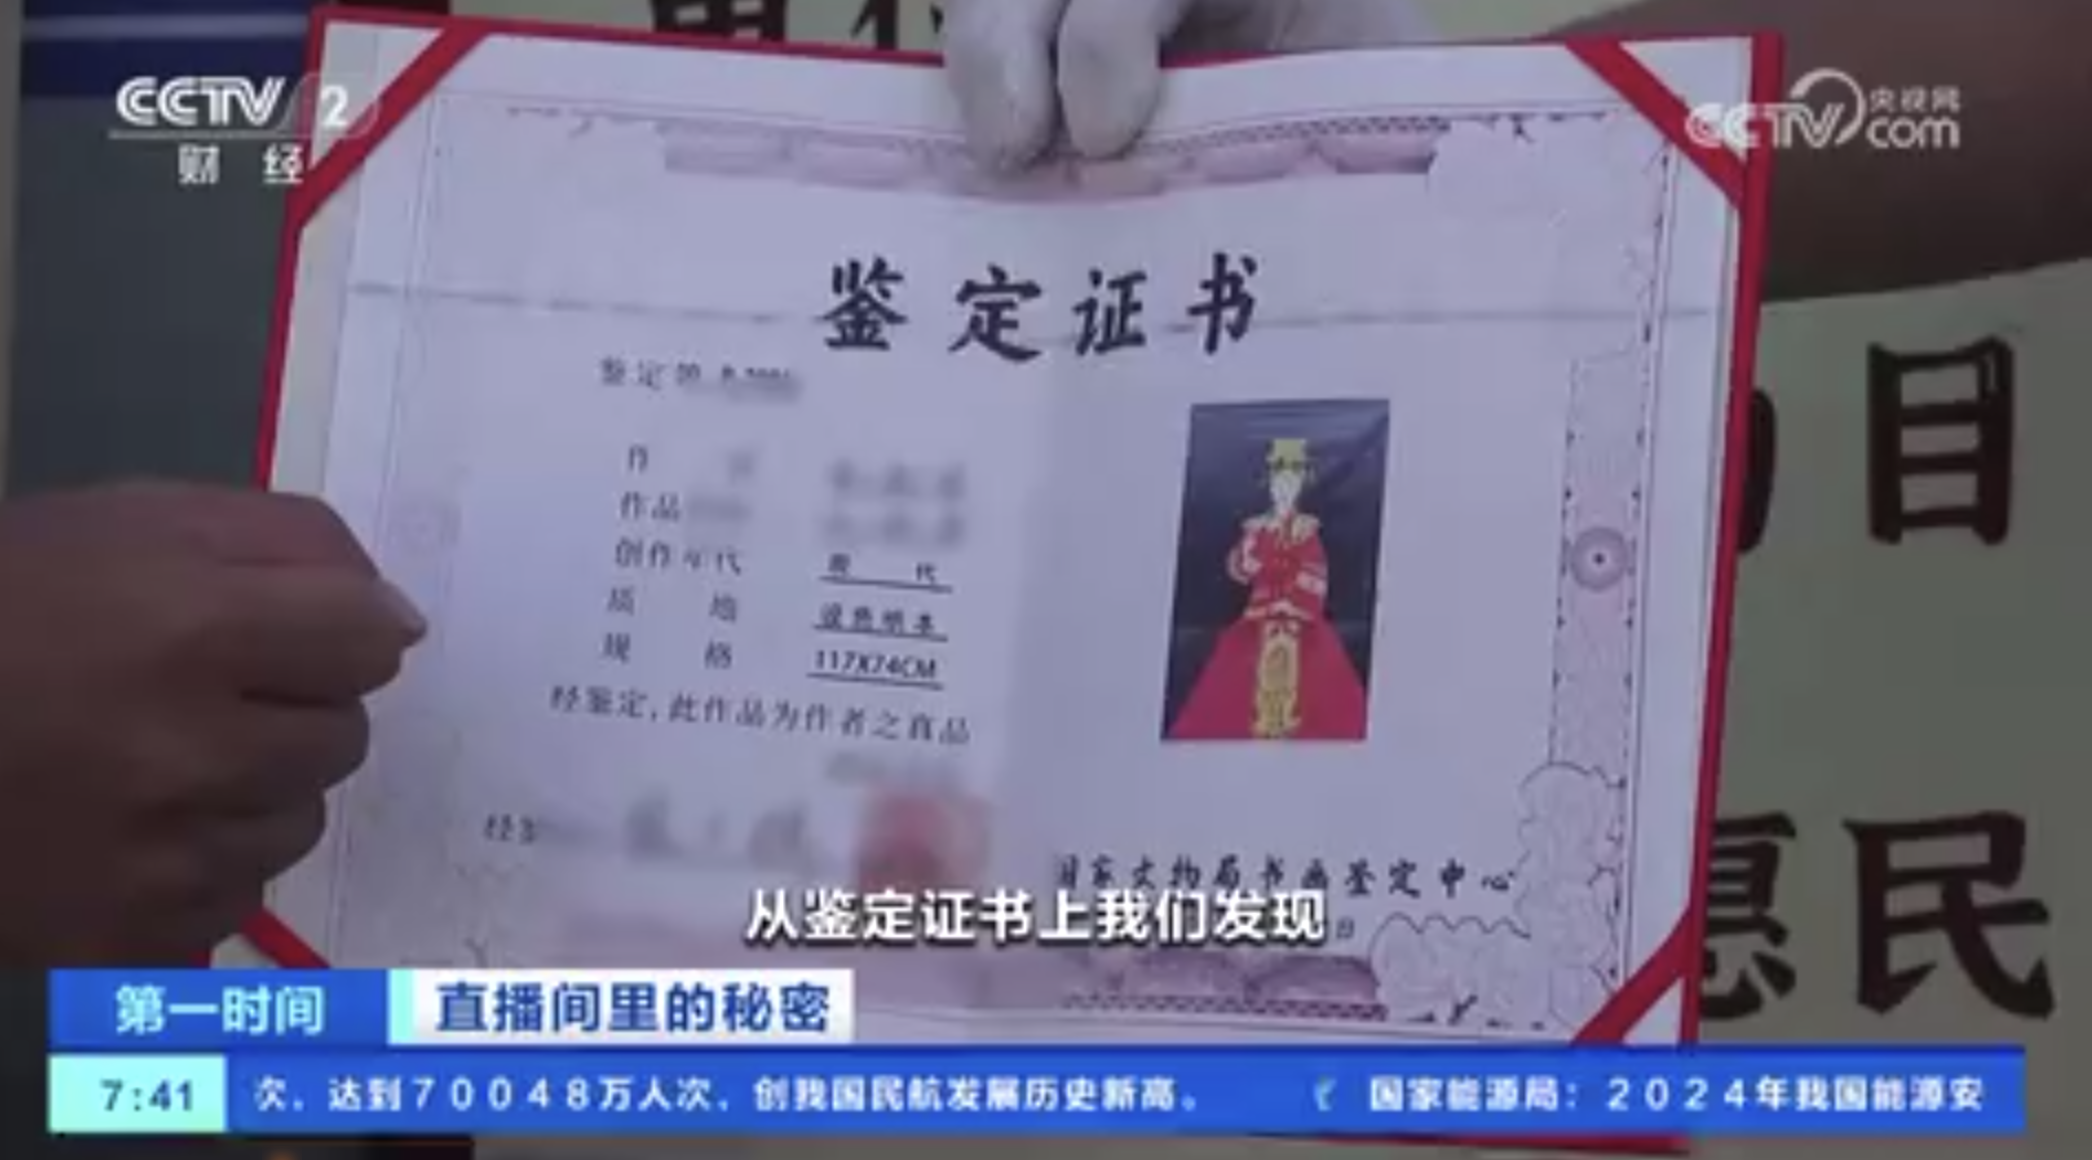 CCTV 2
财经
CCTV 央视网
com
鉴定证书
鉴定
作
作品
创作年代 现代
质地 设色纸本
规格 117X74CM
经鉴定,此作品为作者之真品
国家文物局书画鉴定中心
日
目
愿民
从鉴定证书上我们发现
第一时间 直播间里的秘密
7:41 次,达到70048万人次,创我国民航发展历史新高。 国家能源局:2024年我国能源安